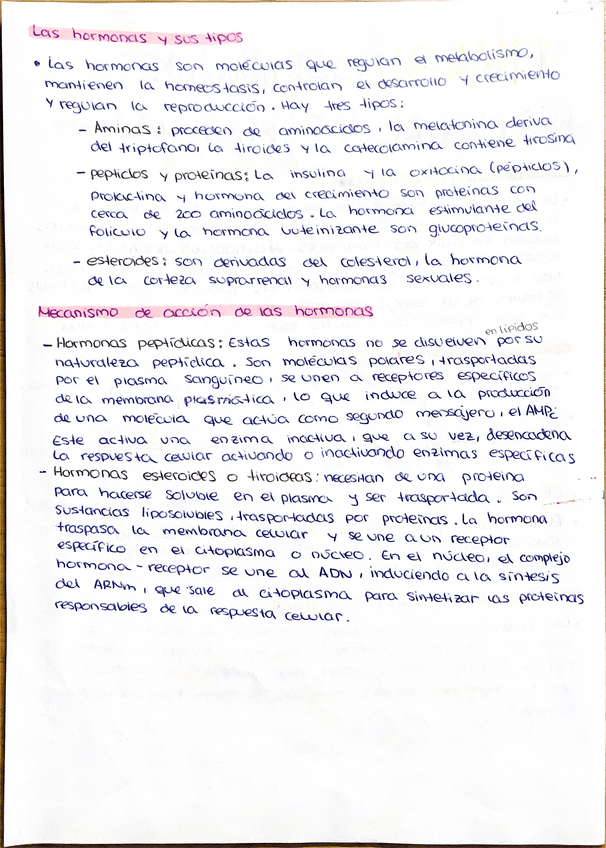 Las hormonas y sus tipos
• Las hormonas son moléculas que regulan el metabolismo,
mantienen la homeostasis, controlan el desarrollo y crecimiento
y regulan la reproducción. Hay tres tipos:
- Aminas: proceden de aminoácidos, la melatonina deriva
del triptofano, la tiroides y la catecolamina contiene tirosina
- peptidos y proteínas: La insulina y la oxitocina (péptidos),
prolactina y hormona del crecimiento son proteínas con
cerca de 200 aminoácidos. La hormona estimulante del
folículo y la hormona luteinizante son glucoproteínas.
- esteroides: son derivadas del colesterol, la hormona
de la corteza suprarrenal y hormonas sexuales.
Mecanismo de acción de las hormonas
en lípidos
- Hormonas peptídicas: Estas hormonas no se disuelven por su
naturaleza peptídica. Son moléculas polares, trasportadas
por el plasma sanguíneo, se unen a receptores específicos
de la membrana plasmática, lo que induce a la producción
de una molécula que actúa como segundo mensajero, el AMPc
Este activa una enzima inactiva, que a su vez, desencadena
la respuesta celular activando o inactivando enzimas específicas
- Hormonas esteroides o tiroideas: necesitan de una proteína
para hacerse soluble en el plasma y ser trasportada. Son
sustancias liposolubles, trasportadas por proteínas. La hormona
traspasa la membrana celular y se une a un receptor
específico en el citoplasma o núcleo. En el núcleo, el complejo
hormona-receptor se une al ADN, induciendo a la síntesis
del ARNm, que sale al citoplasma para sintetizar las proteínas
responsables de la respuesta celular.